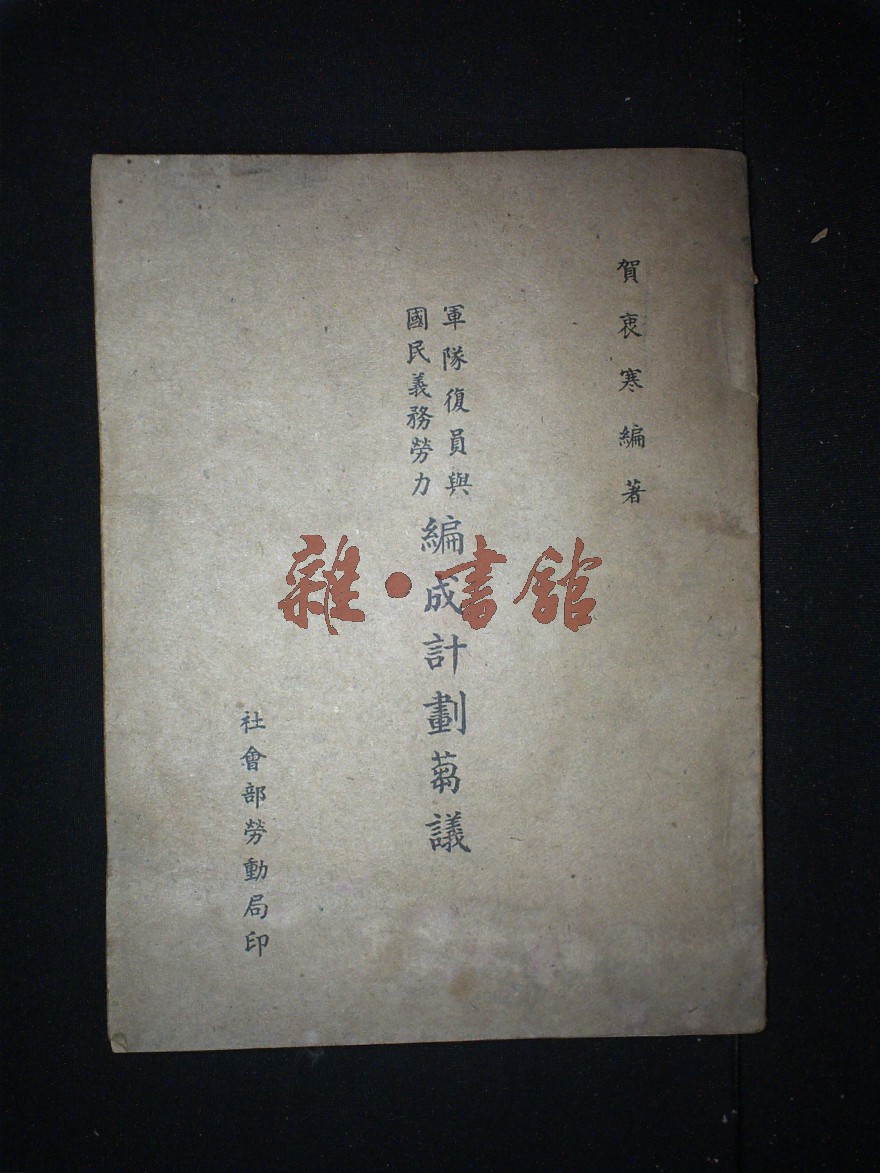 賀衷寒編著
軍隊復員與
國民義務勞力
編成計劃芻議
社會部勞動局印
雜·書館